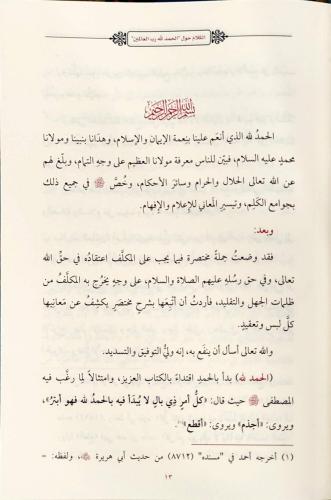 الكلام حول "الحمد لله رب العالمين"
بسم الله الرحمن الرحيم
الحمدُ لله الذي أنعَم علينا بنِعمة الإيمان والإسلام، وهدَانا بنبينا ومولانا
محمدٍ عليه السلام، فبيَّن للناس معرفة مولانا العظيم على وجهِ التمام، وبلَّغ لهم
عن الله تعالى الحلال والحرام وسائرَ الأحكام، وخُصَّ ﷺ في جميع ذلك
بجوامع الكَلِم، وتيسيرِ المعاني للإعلام والإفهام.
وبعد:
فقد وضعتُ جملةً مختصرة فيما يجب على المكلَّف اعتقادُه في حقِّ الله
تعالى، وفي حق رسُلِه عليهم الصلاة والسلام، على وجهٍ يخرُج به المكلَّفُ من
ظلمات الجهل والتقليد، فأردتُ أن أتْبِعَها بشرحٍ مختصَرٍ يكشِفُ عن مَعانِيها
كلَّ لبس وتعقيدٍ.
والله تعالى أسأل أن ينفَع به، إنه وليُّ التوفيق والتسديد.
(الحمد لله) بدأ بالحمدِ اقتداءً بالكتاب العزيز، وامتثالًا لِما رغَّب فيه
المصطفى ﷺ حيث قال: «كلُّ أمرٍ ذي بالٍ لا يُبدَأ فيه بالحمدُ لله فهو أبتَرُ»،
ويروى: «أجذم» ويروى: «أقطع»(١).
(١) أخرجه أحمد في "مسنده" (٨٧١٢) من حديث أبي هريرة ﷺ، ولفظه: =
١٣